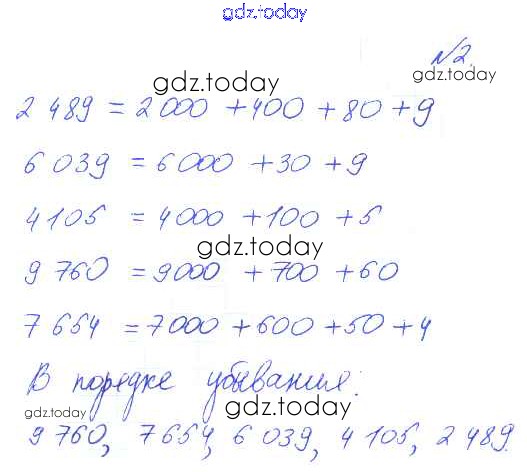 gdz.today
№2.
gdz.today
2 489 = 2 000 + 400 + 80 + 9
6 039 = 6 000 + 30 + 9
4 105 = 4 000 + 100 + 5
gdz.today
9 760 = 9 000 + 700 + 60
7 654 = 7 000 + 600 + 50 + 4
В порядке убывания:
gdz.today gdz.today
9 760, 7 654, 6 039, 4 105, 2 489.